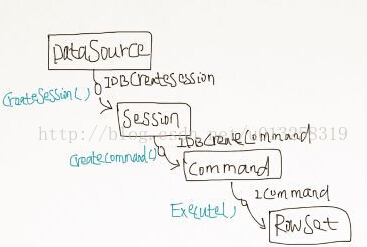 DataSource
IDBCreateSession
CreateSession()
Session
IDBCreateCommand
CreateCommand()
Command
ICommand
Execute()
RowSet